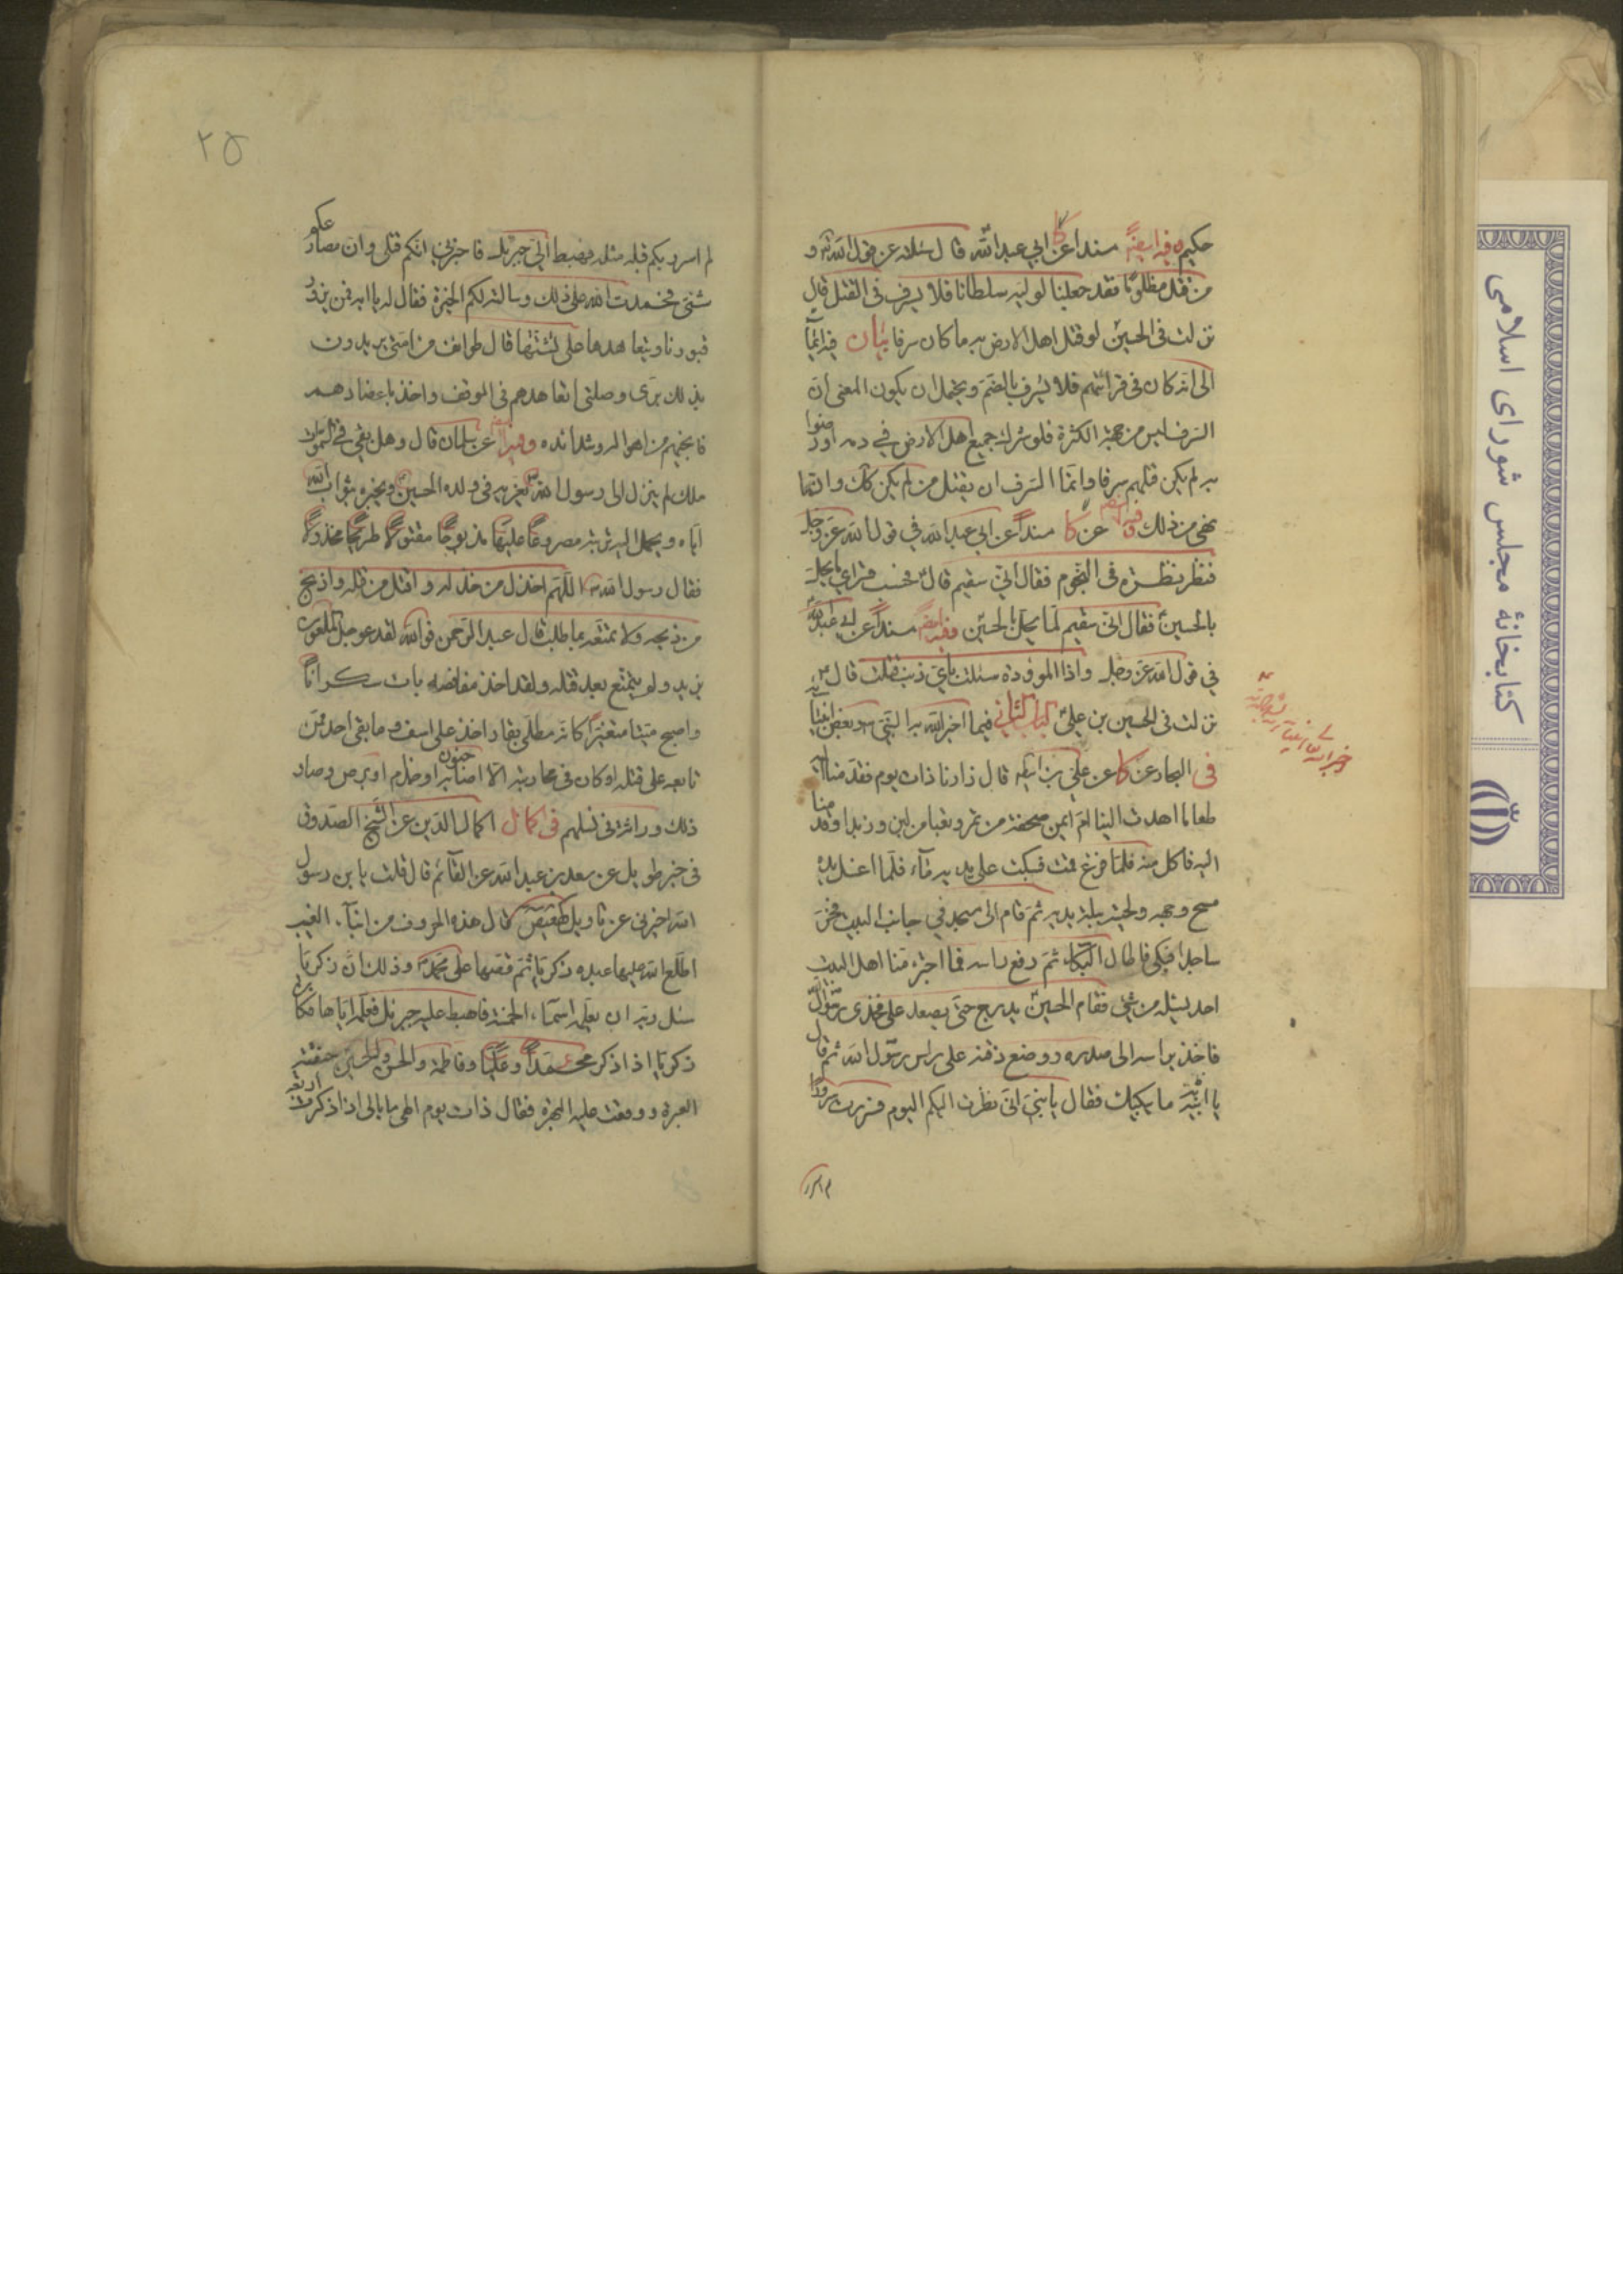 حكيم وفيه ايضاً مسنداً عن كا ابي عبد الله قال سئلته عن قول الله تعالى و
من قتل مظلوما فقد جعلنا لوليه سلطانا فلا يسرف في القتل قال
نزلت في الحسين لو قتل اهل الارض به ما كان سرفا بيان فيه ايماء
الى انه كان في قرائتهم فلا يسرف بالضم ويحتمل ان يكون المعنى ان
السرف ليس من جهة الكثرة فلو شرك جميع اهل الارض في دمه او رضوا
به لم يكن قتلهم سرفا وانما السرف ان يقتل من لم يكن كك وانما
نهى من ذلك وفيه ايضا عن كا مسنداً عن ابي عبد الله في قول الله عز وجل
فنظر نظرة في النجوم فقال اني سقيم قال حسب فراى ما يحل
بالحسين فقال اني سقيم لما يحل بالحسين وفيه ايضاً مسنداً عن ابي عبد الله
في قول الله عز وجل واذا الموؤدة سئلت باي ذنب قتلت قال
نزلت في الحسين بن علي الباب الثاني فيما اخبر الله به النبي وبعض انبيائه
في البحار عن كا عن علي بن ابيطالب قال زارنا ذات يوم فقدمنا اليه
طعاما اهدت الينا ام ايمن صحفة من تمر وقعبا من لبن وزبدا وقدمنا
اليه فاكل منه فلما فرغ قمت فسكبت على يديه ماء فلما غسل يده
مسح وجهه ولحيته ببلة يديه ثم قام الى مسجد في جانب البيت فخر
ساجدا فبكى فاطال البكاء ثم رفع راسه فما اجترء منا اهل البيت
احد يسئله من شيء فقام الحسين يدرج حتى يصعد على فخذي رسول الله
فاخذ براسه الى صدره ووضع ذقنه على راس رسول الله ثم قال
يا ابه ما يبكيك فقال يا بني اني نظرت اليكم اليوم فسررت سرورا
لم اسر
لم اسر بكم قبله مثله فهبط الي جبرئيل فاخبرني انكم قتلى وان مصارعكم
شتى فحمدت الله على ذلك وسالته لكم الخيرة فقال له يا ابه فمن يزور
قبورنا ويتعاهدها على تشتتها قال طوائف من امتي يريدون
بذلك بري وصلتي اتعاهدهم في الموقف واخذ باعضادهم
فانجيهم من اهواله وشدائده وفيه ايضا عن سلمان قال وهل بقي في السموات
ملك لم ينزل الى رسول الله يعزيه في ولده الحسين ويخبره بثواب الله
اياه ويحمل اليه تربته مصروعا عليها مذبوحا مقتولا طريحا مخذولا
فقال رسول الله اللهم اخذل من خذله واقتل من قتله واذبح
من ذبحه ولا تمتعه بما طلب قال عبد الرحمن فوالله لقد عوجل الملعون
يزيد ولم يتمتع بعد قتله ولقد اخذ مغافصة بات سكرانا
واصبح ميتا متغيرا كانه مطلي بقار اخذ على اسف وما بقي احد ممن
تابعه على قتله او كان في محاربته الا اصابه جنون او جذام او برص وصار
ذلك وراثة في نسلهم في اكمال اكمال الدين عن الشيخ الصدوق
في خبر طويل عن سعد بن عبد الله عن القائم قال قلت يا بن رسول
الله اخبرني عن تاويل كهيعص قال هذه الحروف من انباء الغيب
اطلع الله عليها عبده زكريا ثم قصها على محمد وذلك ان زكريا
سئل ربه ان يعلمه اسماء الخمسة فاهبط عليه جبرئيل فعلمه اياها فكان
زكريا اذا ذكر محمداً وعليا وفاطمة والحسن والحسين خنقته
العبرة ووقعت عليه البهرة فقال ذات يوم الهي ما بالي اذا ذكرت اربعة
۲۵
كتابخانهٔ مجلس شورای اسلامی